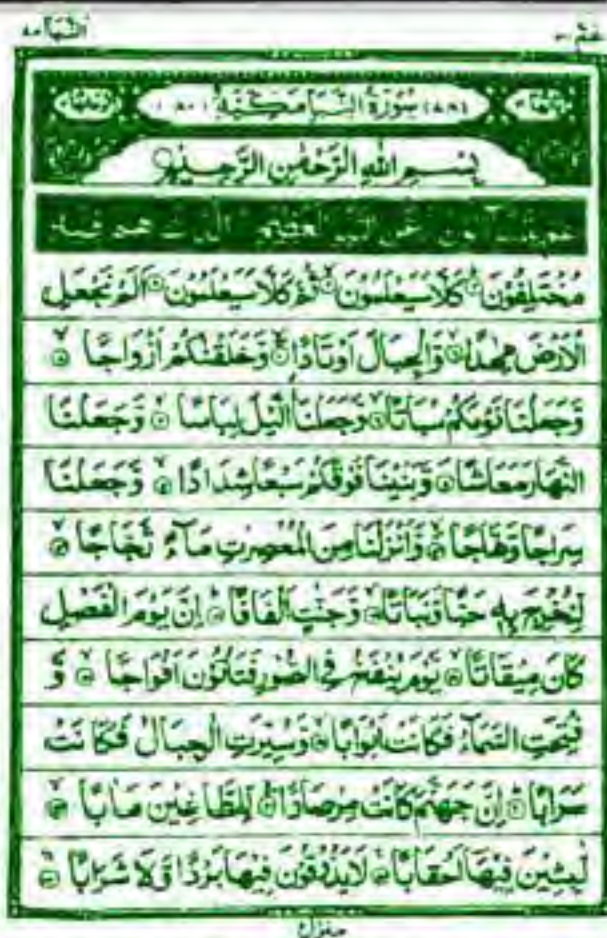 النبا ٧٨
عم ٣٠
سُوْرَةُ النَّبَاِ مَكِّيَّةٌ
بِسْمِ اللّٰهِ الرَّحْمٰنِ الرَّحِيْمِ
عَمَّ يَتَسَآءَلُوْنَ عَنِ النَّبَاِ الْعَظِيْمِ الَّذِيْ هُمْ فِيْهِ
مُخْتَلِفُوْنَ كَلَّا سَيَعْلَمُوْنَ ثُمَّ كَلَّا سَيَعْلَمُوْنَ اَلَمْ نَجْعَلِ
الْاَرْضَ مِهٰدًا وَّالْجِبَالَ اَوْتَادًا وَّخَلَقْنٰكُمْ اَزْوَاجًا
وَّجَعَلْنَا نَوْمَكُمْ سُبَاتًا وَّجَعَلْنَا الَّيْلَ لِبَاسًا وَّجَعَلْنَا
النَّهَارَ مَعَاشًا وَّبَنَيْنَا فَوْقَكُمْ سَبْعًا شِدَادًا وَّجَعَلْنَا
سِرَاجًا وَّهَّاجًا وَّاَنْزَلْنَا مِنَ الْمُعْصِرٰتِ مَآءً ثَجَّاجًا
لِّنُخْرِجَ بِهٖ حَبًّا وَّنَبَاتًا وَّجَنّٰتٍ اَلْفَافًا اِنَّ يَوْمَ الْفَصْلِ
كَانَ مِيْقَاتًا يَّوْمَ يُنْفَخُ فِي الصُّوْرِ فَتَاْتُوْنَ اَفْوَاجًا وَّ
فُتِحَتِ السَّمَآءُ فَكَانَتْ اَبْوَابًا وَّسُيِّرَتِ الْجِبَالُ فَكَانَتْ
سَرَابًا اِنَّ جَهَنَّمَ كَانَتْ مِرْصَادًا لِّلطَّاغِيْنَ مَاٰبًا
لّٰبِثِيْنَ فِيْهَآ اَحْقَابًا لَا يَذُوْقُوْنَ فِيْهَا بَرْدًا وَّلَا شَرَابًا
منزل